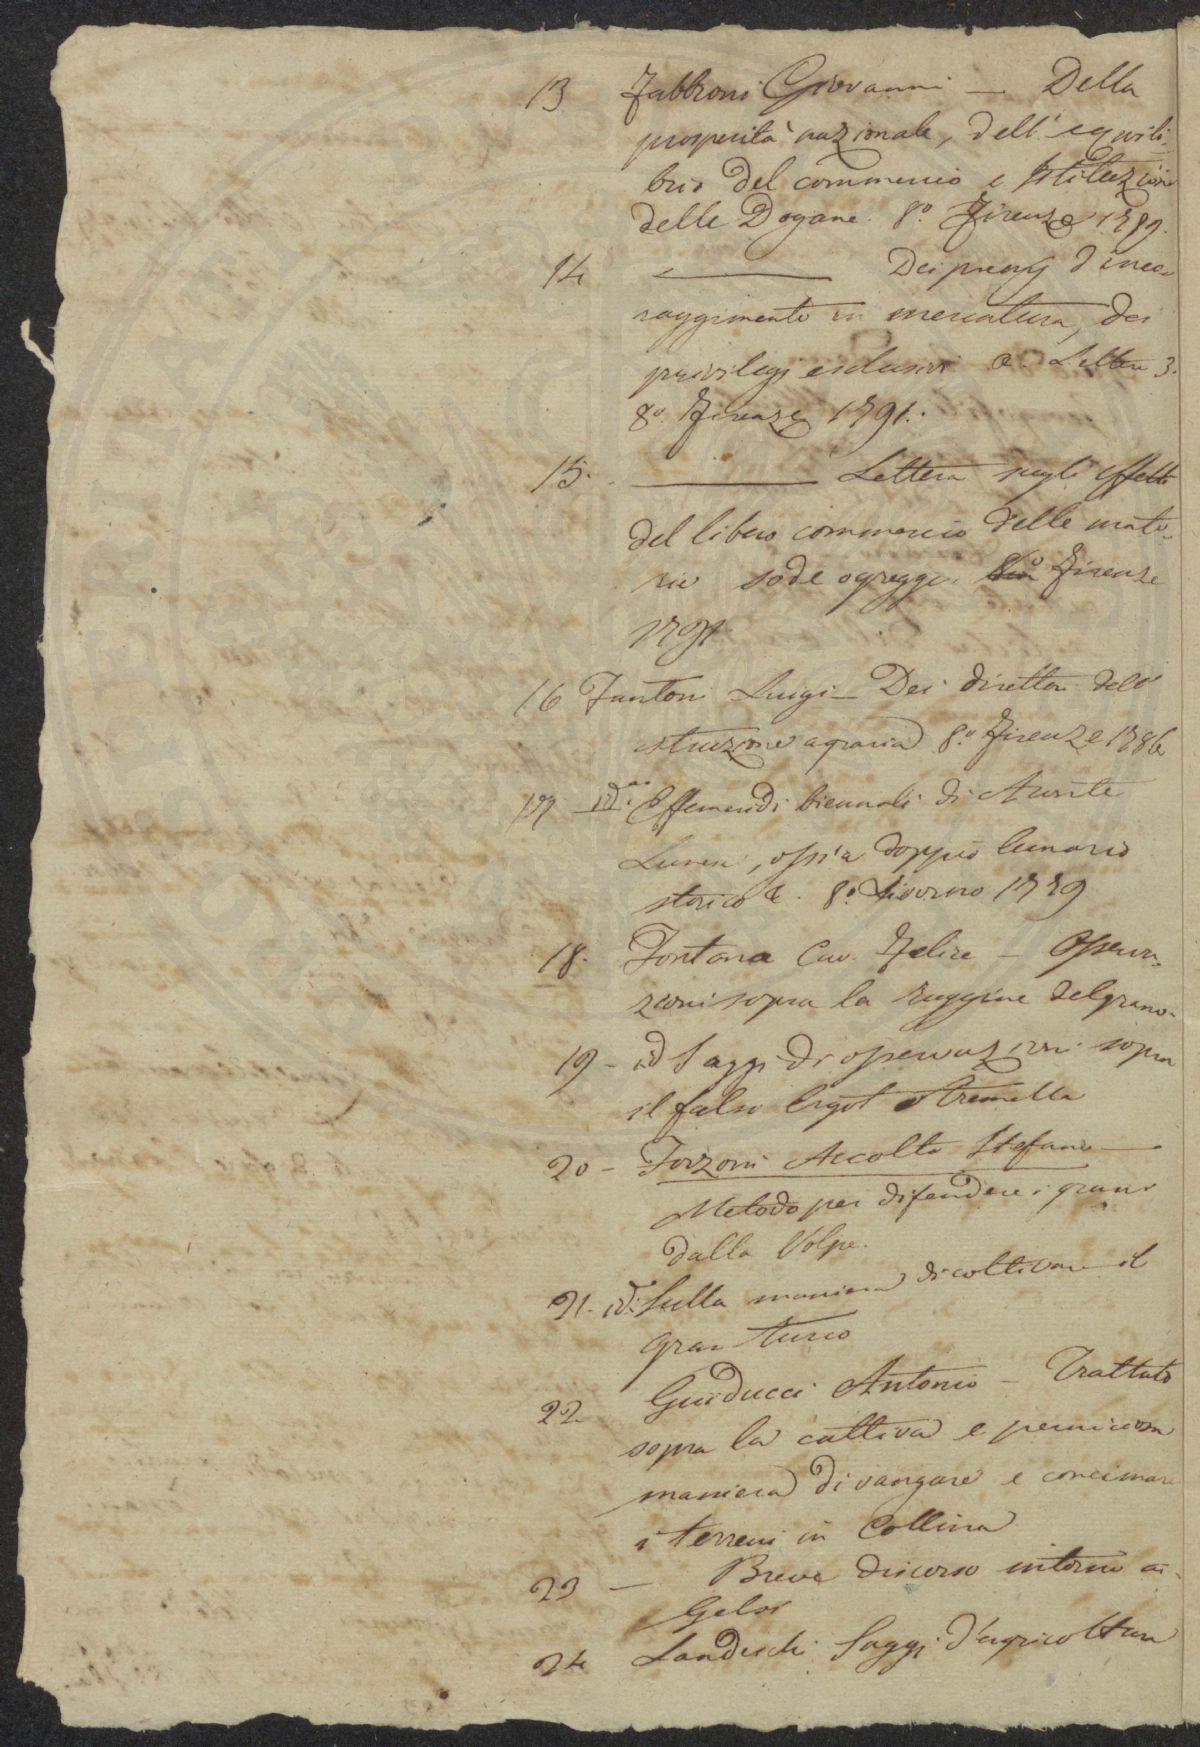 13 Fabbroni Giovanni — Della
prosperità nazionale, dell' equili-
brio del commercio e istituzione
delle Dogane. 8.º Firenze 1789.
14 ——— Dei premj d'inco-
raggimento in mercatura, dei
privilegj esclusivi &. Lettere 3.
8.º Firenze 1791.
15. ——— Lettera sugli effetti
del libero commercio delle mate-
rie sode o gregge. 8º Firenze
1791
16 Fantoni Luigi — Dei direttori dell'
istruzione agraria 8.º Firenze 1786
17 id. Effemeridi biennali di Aronte
Lunen, ossia doppio lunario
storico &. 8.º Livorno 1779
18. Fontana Cav. Felice — Osserva-
zioni sopra la ruggine del grano.
19 — id Saggi di osservazioni sopra
il falso Ergot e Tremella
20 — Forzoni Accolto Stefano —
Metodo per difendere i grani
dalla Volpe.
21. id: Sulla maniera di coltivare il
gran turco
22 Guiducci Antonio — Trattato
sopra la cattiva e perniciosa
maniera di vangare e concimare
i terreni in Collina
23 — Breve discorso intorno ai
Gelsi
24 Landeschi Saggj d'agricoltura